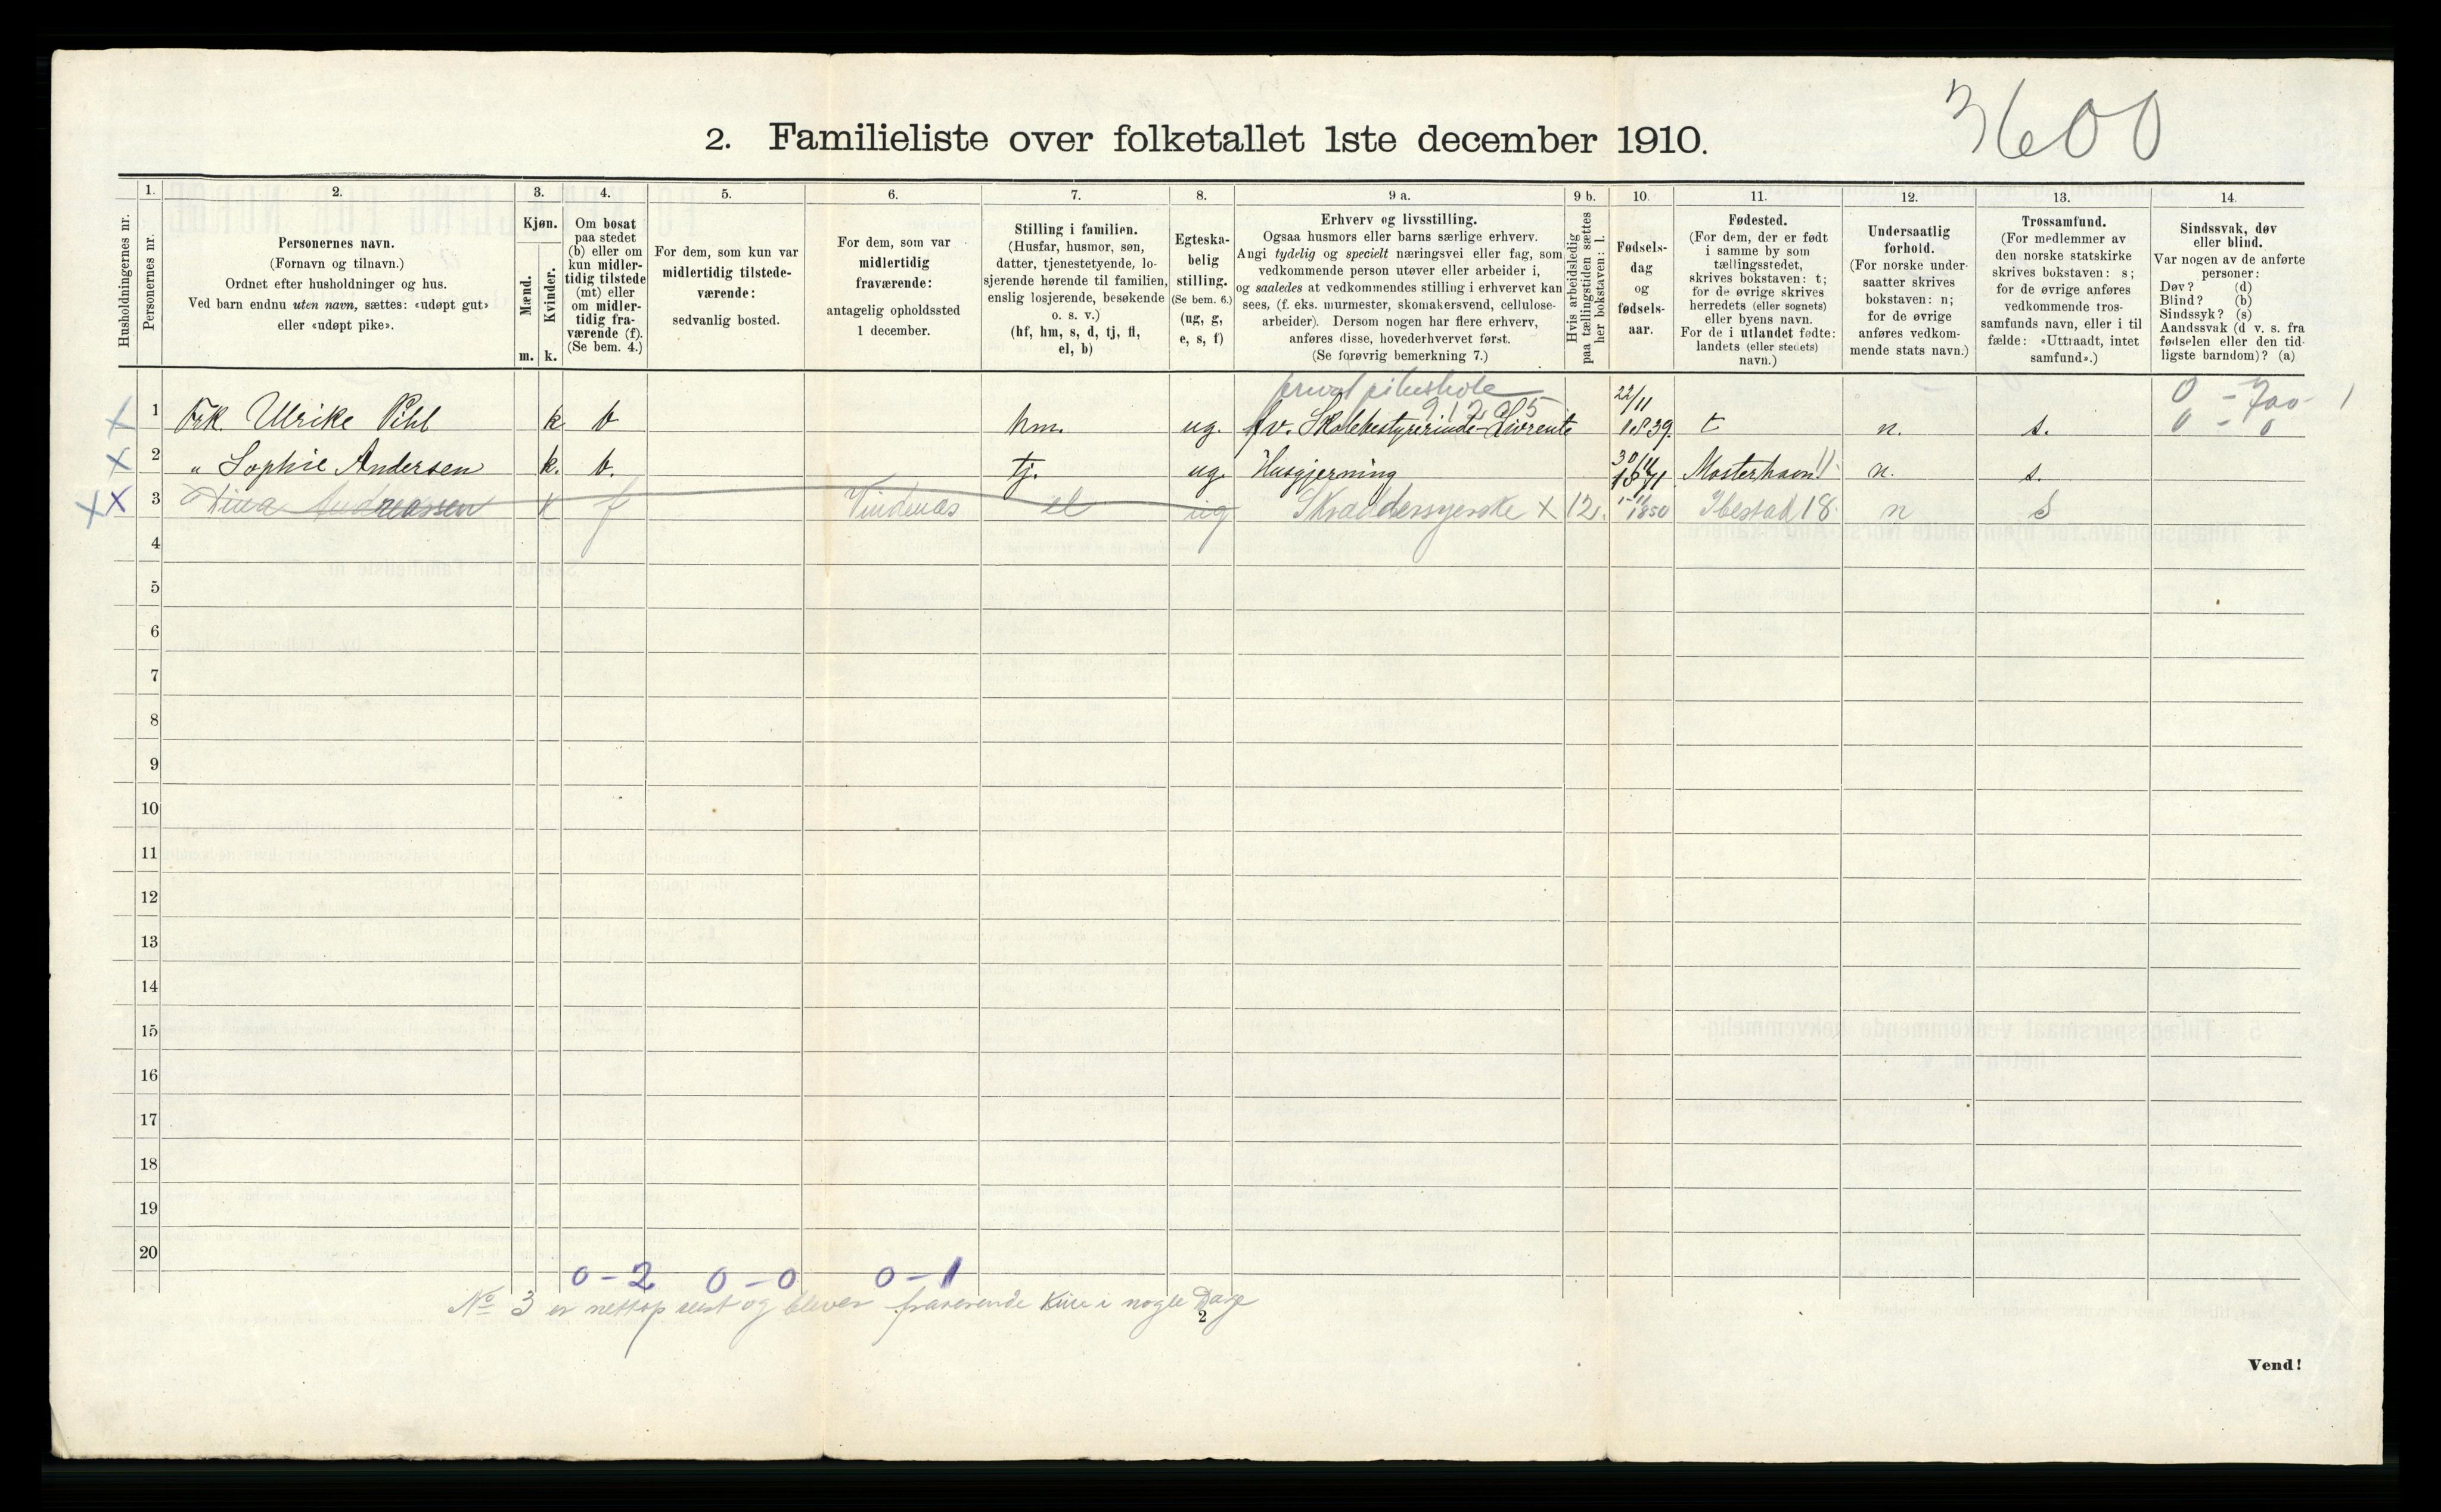 3600
2. Familieliste over folketallet 1ste december 1910.
Husholdningernes nr.
1.
Personernes nr.
2.
Personernes navn.
(Fornavn og tilnavn.)
Ordnet efter husholdninger og hus.
Ved barn endnu uten navn, sættes: «udøpt gut»
eller «udøpt pike».
3.
Kjøn.
Mænd.
Kvinder.
m. k.
4.
Om bosat
paa stedet
(b) eller om
kun midler-
tidig tilstede
(mt) eller
om midler-
tidig fra-
værende (f).
(Se bem. 4.)
5.
For dem, som kun var
midlertidig tilstede-
værende:
sedvanlig bosted.
6.
For dem, som var
midlertidig
fraværende:
antagelig opholdssted
1 december.
7.
Stilling i familien.
(Husfar, husmor, søn,
datter, tjenestetyende, lo-
sjerende hørende til familien,
enslig losjerende, besøkende
o. s. v.)
(hf, hm, s, d, tj, fl,
el, b)
8.
Egteska-
belig
stilling.
(Se bem. 6.)
(ug, g,
e, s, f)
9 a.
Erhverv og livsstilling.
Ogsaa husmors eller barns særlige erhverv.
Angi tydelig og specielt næringsvei eller fag, som
vedkommende person utøver eller arbeider i,
og saaledes at vedkommendes stilling i erhvervet kan
sees, (f. eks. murmester, skomakersvend, cellulose-
arbeider). Dersom nogen har flere erhverv,
anføres disse, hovederhvervet først.
(Se forøvrig bemerkning 7.)
9 b.
Hvis arbeidsledig
paa tællingstiden sættes
her bokstaven: l.
10.
Fødsels-
dag
og
fødsels-
aar.
11.
Fødested.
(For dem, der er født
i samme by som
tællingsstedet,
skrives bokstaven: t;
for de øvrige skrives
herredets (eller sognets)
eller byens navn.
For de i utlandet fødte:
landets (eller stedets)
navn.)
12.
Undersaatlig
forhold.
(For norske under-
saatter skrives
bokstaven: n;
for de øvrige
anføres vedkom-
mende stats navn.)
13.
Trossamfund.
(For medlemmer av
den norske statskirke
skrives bokstaven: s;
for de øvrige anføres
vedkommende tros-
samfunds navn, eller i til-
fælde: «Uttraadt, intet
samfund».)
14.
Sindssvak, døv
eller blind.
Var nogen av de anførte
personer:
Døv? (d)
Blind? (b)
Sindssyk? (s)
Aandssvak (d. v. s. fra
fødselen eller den tid-
ligste barndom)? (a)
privat pikeskole
9.12.05
0 - 700 - 1
0 - 0
X 1 Frk. Ulrike Pihl k b hm. ug. fv. Skolebestyrerinde - Livrente 22/11 1839. t n. s.
X 2 " Sophie Andersen k. b. tj. ug. Husgjerning 30/11 1871 Mosterhavn 11. n. s.
XX 3 Tina Andreassen k f Vindenæs el ug Skræddersyerske X 12. 1850 Ibestad 18 n s
4
5
6
7
8
9
10
11
12
13
14
15
16
17
18
19
20
0 - 2 0 - 0 0 - 1
No 3 er nettop reist og bliver fraverende kun i nogle Dage
2
Vend!